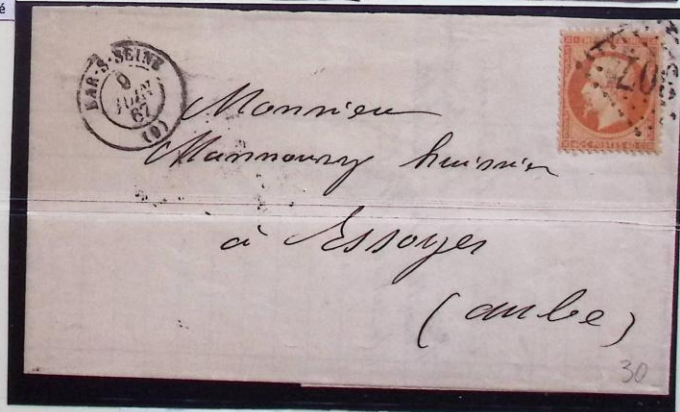 é
BAR-S-SEINE
9
JUIN
67
(9)
Monsieur
Mannoury huissier
à Essoyes
(aube)
30